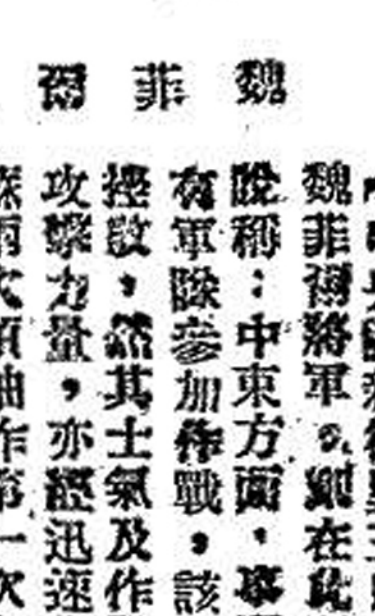 魏菲爾
魏菲爾將軍，則在此
說稱：中東方面，
有軍隊參加作戰，該
挫敗，然其士氣及作
攻擊力量，亦經迅速
軸作第一次